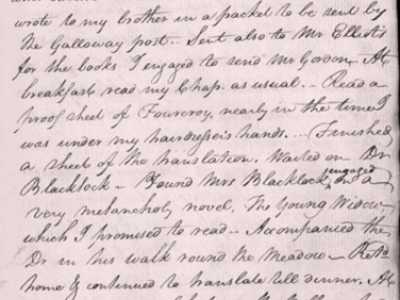 wrote to my brother in a packet to be sent by
the Galloway post.. Sent also to Mr Elliot's
for the books I engaged to send Mr Gordon. At
breakfast read my Chap. as usual. - Read a
proof sheet of Fourcroy, nearly in the time I
was under my hairdresser's hands... - Finished
a sheet of the translation. Waited on Dr
Blacklock - Found Mrs Blacklock engaged in a
very melancholy novel, The Young Widow
which I promised to read - Accompanied the
Dr in his walk round the Meadow - Retd
home & continued to translate till dinner. At